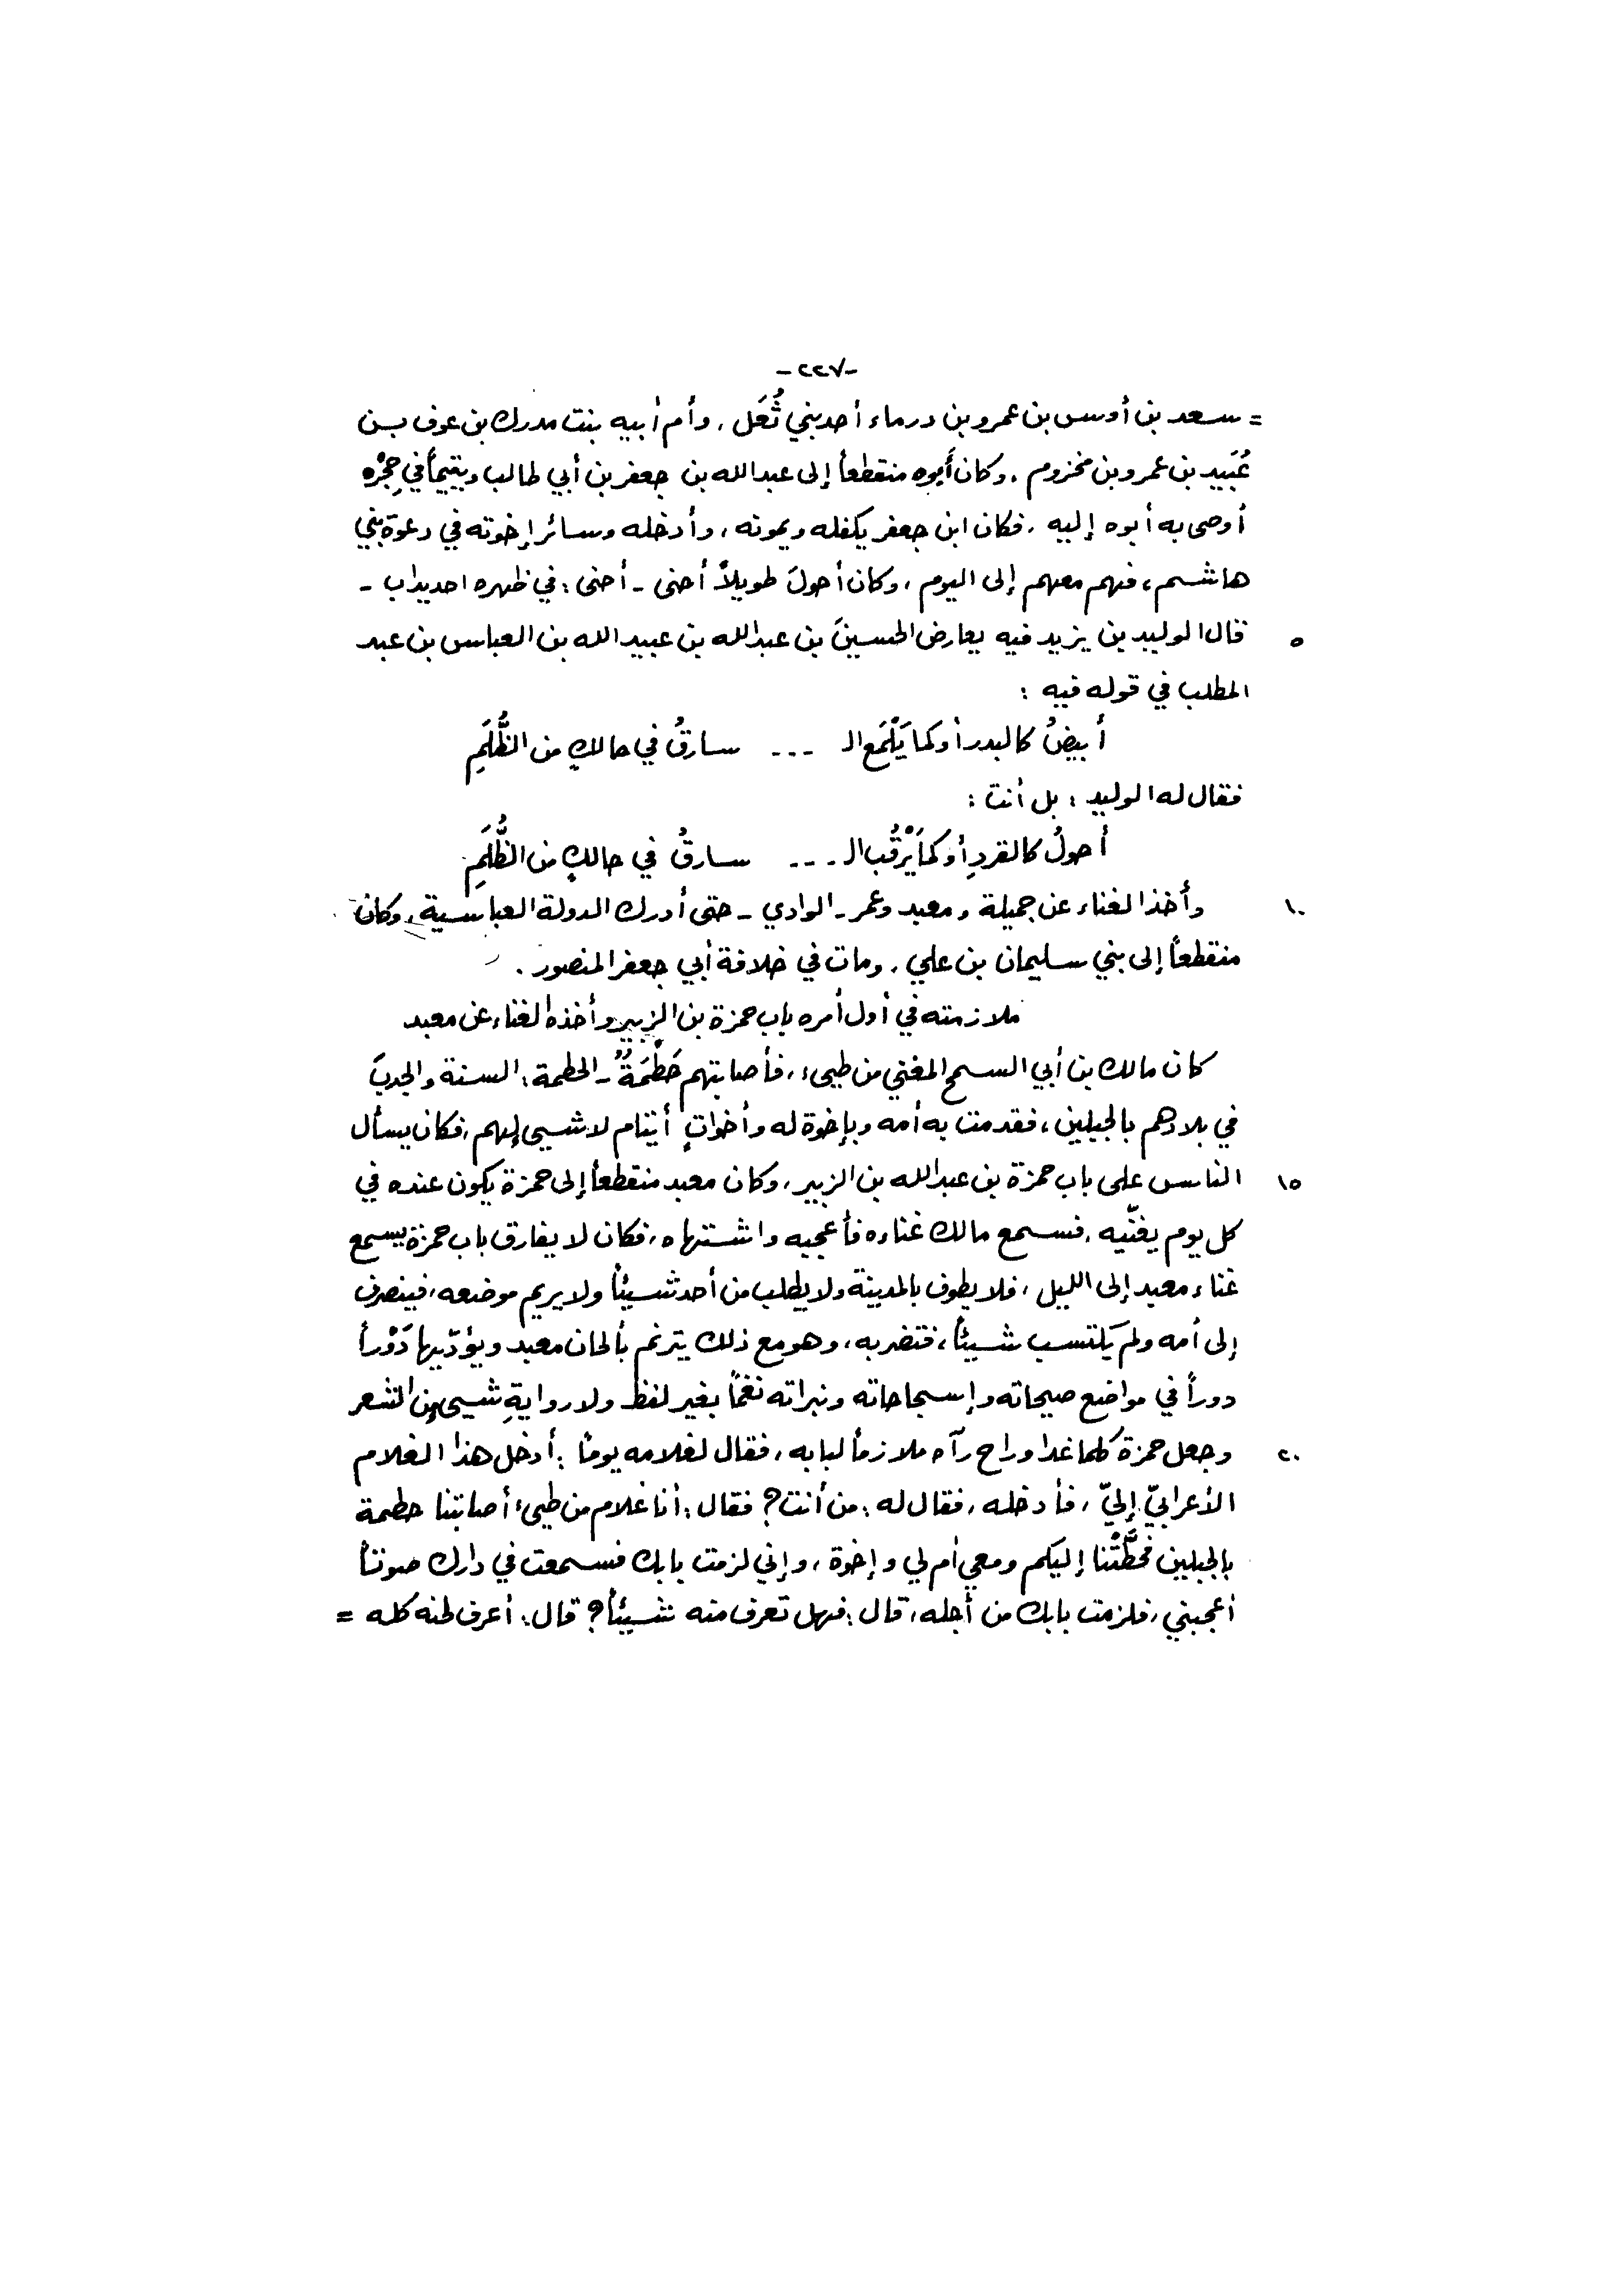 -٢٢٧-
= سعد بن أوس بن عمرو بن درماء أحد بني ثُعَل، وأم أبيه بنت مدرك بن عوف بن
عُبَيد بن عمرو بن مخزوم، وكان أبوه منقطعاً إلى عبد الله بن جعفر بن أبي طالب ويتيماً في حِجْره
أوصى به أبوه إليه، فكان ابن جعفر يكفله ويمونه، وأدخله وسائر إخوته في دعوة بني
هاشم، فهم معهم إلى اليوم، وكان أحولَ طويلاً أحنى - أحنى: في ظهره احديداب -
٥ قال الوليد بن يزيد فيه يعارض الحسينَ بن عبد الله بن عبيد الله بن العباس بن عبد
المطلب في قوله فيه :
أبيضُ كالبدر أو كما يَلْمَع الـ --- سارقُ في حالكٍ من الظُّلَمِ
فقال له الوليد : بل أنت :
أحولُ كالقردِ أو كما يَرْقُب الـ --- سارقُ في حالكٍ من الظُّلَمِ
١٠ وأخذ الغناء عن جميلة ومعبد وعمر - الوادي - حتى أدرك الدولة العباسية، وكان
منقطعاً إلى بني سليمان بن علي، ومات في خلافة أبي جعفر المنصور .
ملازمته في أول أمره باب حمزة بن الزبير وأخذه الغناء عن معبد
كان مالك بن أبي السمح المغني من طيىء، فأصابتهم حَطْمَةٌ - الحطمة: السنة والجدب
في بلادهم بالجبلين، فقدمت به أمه وبإخوة له وأخواتٍ أيتام لا شيىء لهم، فكان يسأل
١٥ الناس على باب حمزة بن عبد الله بن الزبير، وكان معبد منقطعاً إلى حمزة يكون عنده في
كل يوم يغنّيه، فسمع مالك غناءه فأعجبه واشتهاه، فكان لا يفارق باب حمزة يسمع
غناء معبد إلى الليل، فلا يطوف بالمدينة ولا يطلب من أحد شيئاً ولا يريم موضعه، فينصرف
إلى أمه ولم يكتسب شيئاً، فتضربه، وهو مع ذلك يترنم بألحان معبد ويؤدّيها دَوْراً
دوراً في مواضع صيحاته وإسجاحاته ونبراته نغماً بغير لفظ ولا روايةِ شيىء من الشعر
٢٠ وجعل حمزة كلما غدا وراح رآه ملازماً لبابه، فقال لغلامه يوماً : أدخل هذا الغلام
الأعرابيّ إليّ، فأدخله، فقال له: من أنت؟ فقال: أنا غلام من طيىء أصابتنا حطمة
بالجبلين فحطَّتْنا إليكم ومعي أم لي وإخوة، وإني لزمت بابك فسمعت في دارك صوتاً
أعجبني، فلزمت بابك من أجله، قال: فهل تعرف منه شيئاً؟ قال: أعرف لحنه كله =